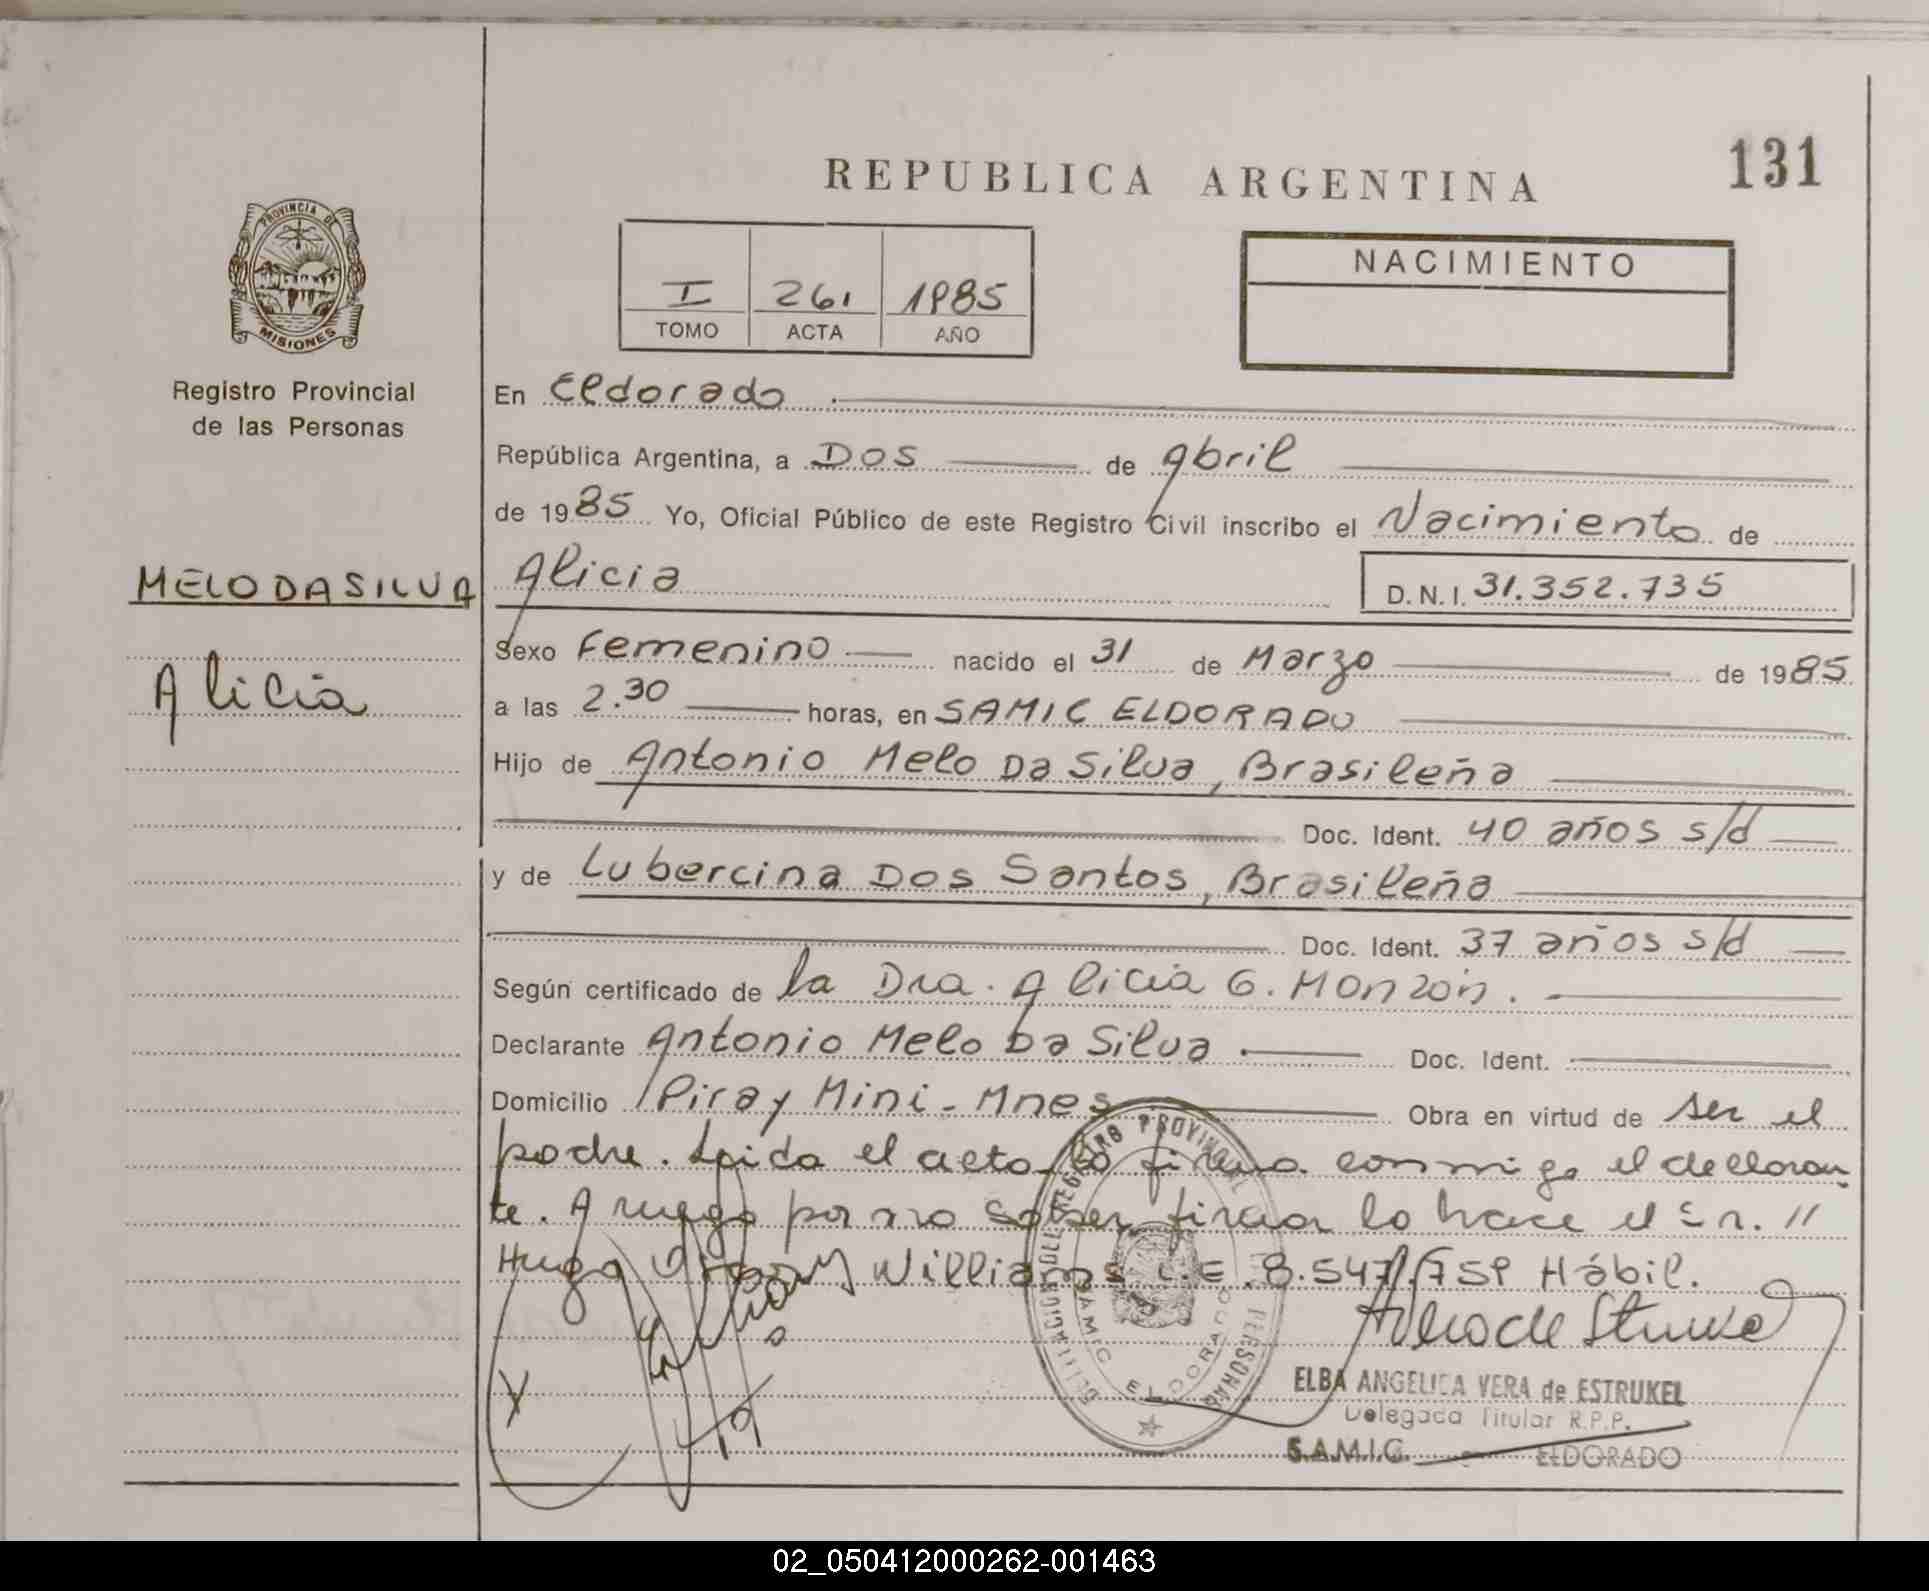 131
REPUBLICA ARGENTINA
PROVINCIA DE
MISIONES
Registro Provincial
de las Personas
I 261 1985
TOMO ACTA AÑO
NACIMIENTO
En Eldorado
República Argentina, a Dos de Abril
de 1985 Yo, Oficial Público de este Registro Civil inscribo el Nacimiento de
MELO DA SILVA Alicia D.N.I. 31.352.735
Alicia
Sexo Femenino nacido el 31 de Marzo de 1985
a las 2.30 horas, en SAMIC ELDORADO
Hijo de Antonio Melo Da Silva, Brasileña
Doc. Ident. 40 años s/d
y de Lubercina Dos Santos, Brasileña
Doc. Ident. 37 años s/d
Según certificado de la Dra. Alicia G. Monzón.
Declarante Antonio Melo Da Silva. Doc. Ident.
Domicilio Piray Mini - Mnes Obra en virtud de ser el
padre. Leida el acta la firma conmigo el declaran
te. A ruego por no saber firmar lo hace el Sr. //
Hugo Williams L.E. 8.547.759 Hábil.
REGISTRO PROVINCIAL DE PERSONAS
SAMIC ELDORADO
ELBA ANGELICA VERA de ESTRUKEL
Delegada Titular R.P.P.
S.A.M.I.C. ELDORADO
02_050412000262-001463